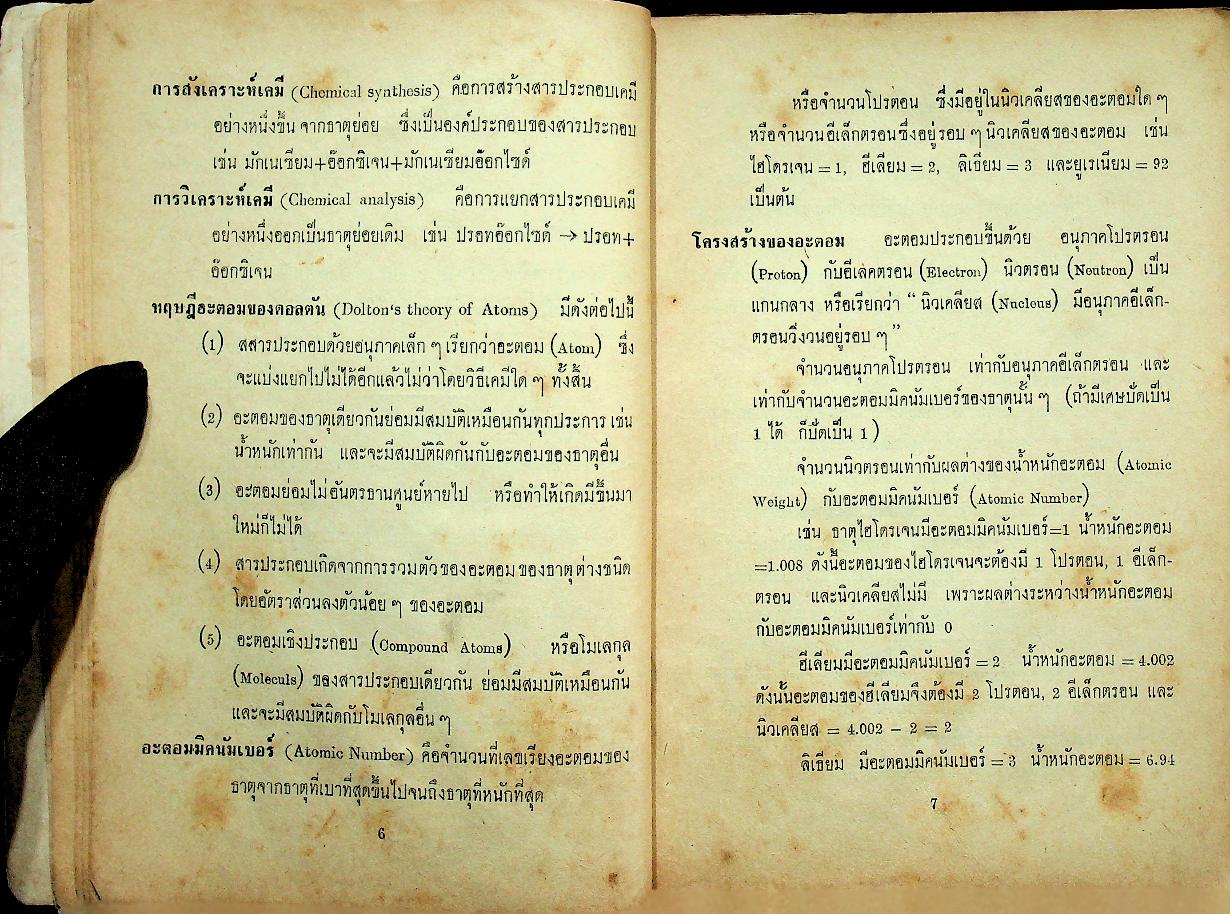 การสังเคราะห์เคมี (Chemical synthesis) คือการสร้างสารประกอบเคมี
อย่างหนึ่งขึ้น จากธาตุย่อย ซึ่งเป็นองค์ประกอบของสารประกอบ
เช่น มักเนเซียม+อ๊อกซิเจน+มักเนเซียมอ๊อกไซด์
การวิเคราะห์เคมี (Chemical analysis) คือการแยกสารประกอบเคมี
อย่างหนึ่งออกเป็นธาตุย่อยเดิม เช่น ปรอทอ๊อกไซด์ → ปรอท+
อ๊อกซิเจน
ทฤษฎีอะตอมของดอลตัน (Dolton's theory of Atoms) มีดังต่อไปนี้
(1) สสารประกอบด้วยอนุภาคเล็ก ๆ เรียกว่าอะตอม (Atom) ซึ่ง
จะแบ่งแยกไปไม่ได้อีกแล้วไม่ว่าโดยวิธีเคมีใด ๆ ทั้งสิ้น
(2) อะตอมของธาตุเดียวกันย่อมมีสมบัติเหมือนกันทุกประการ เช่น
น้ำหนักเท่ากัน และจะมีสมบัติผิดกันกับอะตอมของธาตุอื่น
(3) อะตอมย่อมไม่อันตรธานศูนย์หายไป หรือทำให้เกิดมีขึ้นมา
ใหม่ก็ไม่ได้
(4) สารประกอบเกิดจากการรวมตัวของอะตอมของธาตุต่างชนิด
โดยอัตราส่วนลงตัวน้อย ๆ ของอะตอม
(5) อะตอมเชิงประกอบ (Compound Atoms) หรือโมเลกุล
(Moleculs) ของสารประกอบเดียวกัน ย่อมมีสมบัติเหมือนกัน
และจะมีสมบัติผิดกับโมเลกุลอื่น ๆ
อะตอมมิคนัมเบอร์ (Atomic Number) คือจำนวนที่เลขเรียงอะตอมของ
ธาตุจากธาตุที่เบาที่สุดขึ้นไปจนถึงธาตุที่หนักที่สุด
6
หรือจำนวนโปรตอน ซึ่งมีอยู่ในนิวเคลียสของอะตอมใด ๆ
หรือจำนวนอีเล็กตรอนซึ่งอยู่รอบ ๆ นิวเคลียสของอะตอม เช่น
ไฮโดรเจน = 1, ฮีเลียม = 2, ลิเธี่ยม = 3 และยูเรเนียม = 92
เป็นต้น
โครงสร้างของอะตอม อะตอมประกอบขึ้นด้วย อนุภาคโปรตรอน
(Proton) กับอีเลคตรอน (Electron) นิวตรอน (Neutron) เป็น
แกนกลาง หรือเรียกว่า “ นิวเคลียส (Nucleus) มีอนุภาคอีเล็ก-
ตรอนวิ่งวนอยู่รอบ ๆ ”
จำนวนอนุภาคโปรตรอน เท่ากับอนุภาคอีเล็กตรอน และ
เท่ากับจำนวนอะตอมมิคนัมเบอร์ของธาตุนั้น ๆ (ถ้ามีเศษปัดเป็น
1 ได้ ก็ปัดเป็น 1 )
จำนวนนิวตรอนเท่ากับผลต่างของน้ำหนักอะตอม (Atomic
Weight) กับอะตอมมิคนัมเบอร์ (Atomic Number)
เช่น ธาตุไฮโดรเจนมีอะตอมมิคนัมเบอร์=1 น้ำหนักอะตอม
=1.008 ดังนี้อะตอมของไฮโดรเจนจะต้องมี 1 โปรตอน, 1 อีเล็ก-
ตรอน และนิวเคลียสไม่มี เพราะผลต่างระหว่างน้ำหนักอะตอม
กับอะตอมมิคนัมเบอร์เท่ากับ 0
ฮีเลียมมีอะตอมมิคนัมเบอร์ = 2 น้ำหนักอะตอม = 4.002
ดังนั้นอะตอมของฮีเลียมจึงต้องมี 2 โปรตอน, 2 อีเล็กตรอน และ
นิวเคลียส = 4.002 - 2 = 2
ลิเธียม มีอะตอมมิคนัมเบอร์ = 3 น้ำหนักอะตอม = 6.94
7